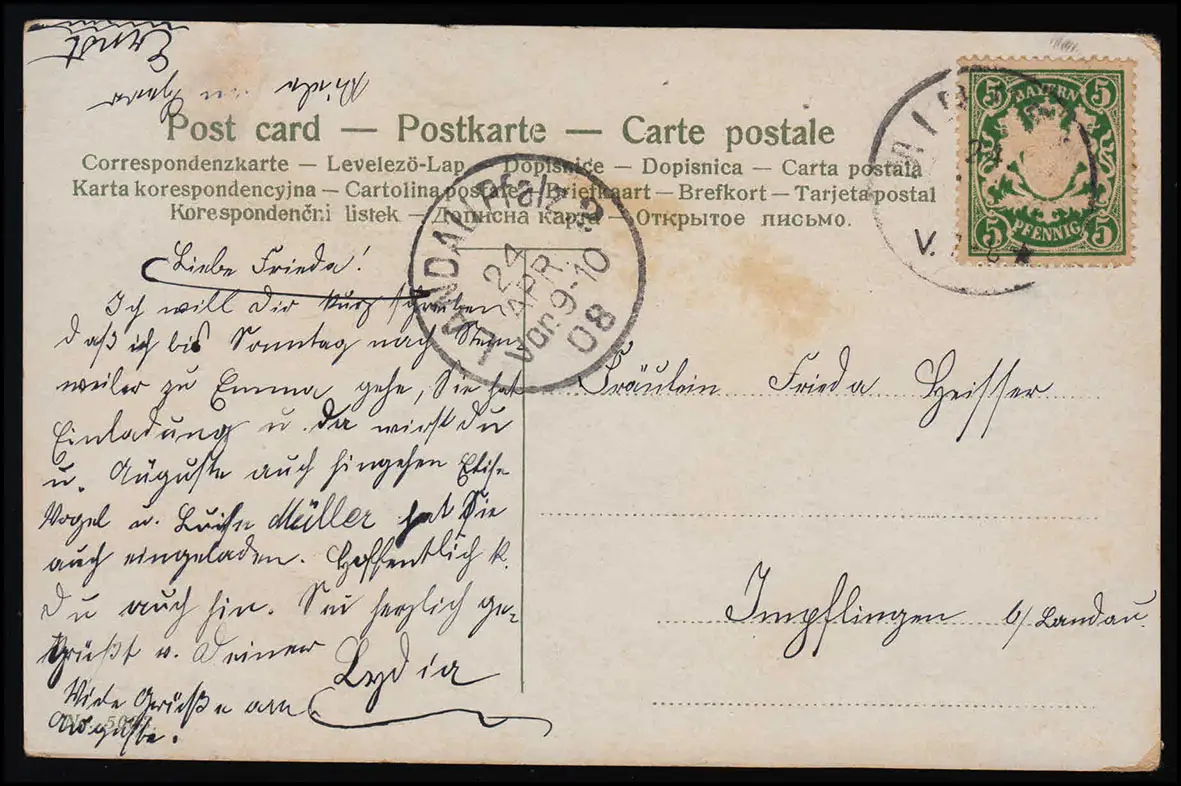 Ernst
Post card — Postkarte — Carte postale
Correspondenzkarte — Levelező-Lap — Dopisnice — Dopisnica — Carta postala
Karta korespondencyjna — Cartolina postale — Briefkaart — Brefkort — Tarjeta postal
Korespondenční listek — Дописна карта — Открытое письмо.
BAYERN
5 5
5 5
PFENNIG
24
V.
LANDAU Pfalz 2
24
APR.
Vor. 9-10
08
Liebe Frieda!
Ich will Dir kurz schreiben
daß ich bis Sonntag nach Stein-
weiler zu Emma gehe, Sie hat
Einladung u. da wirst du
u. Auguste auch hingehen Elise
Vogel u. Luise Müller hat Sie
auch eingeladen. Hoffentlich k.
Du auch hin. Sei herzlich ge-
grüßt v. Deiner
Lydia
Viele Grüße an
Auguste.
No. 500
Fräulein Frieda Heisser
Impflingen b/ Landau